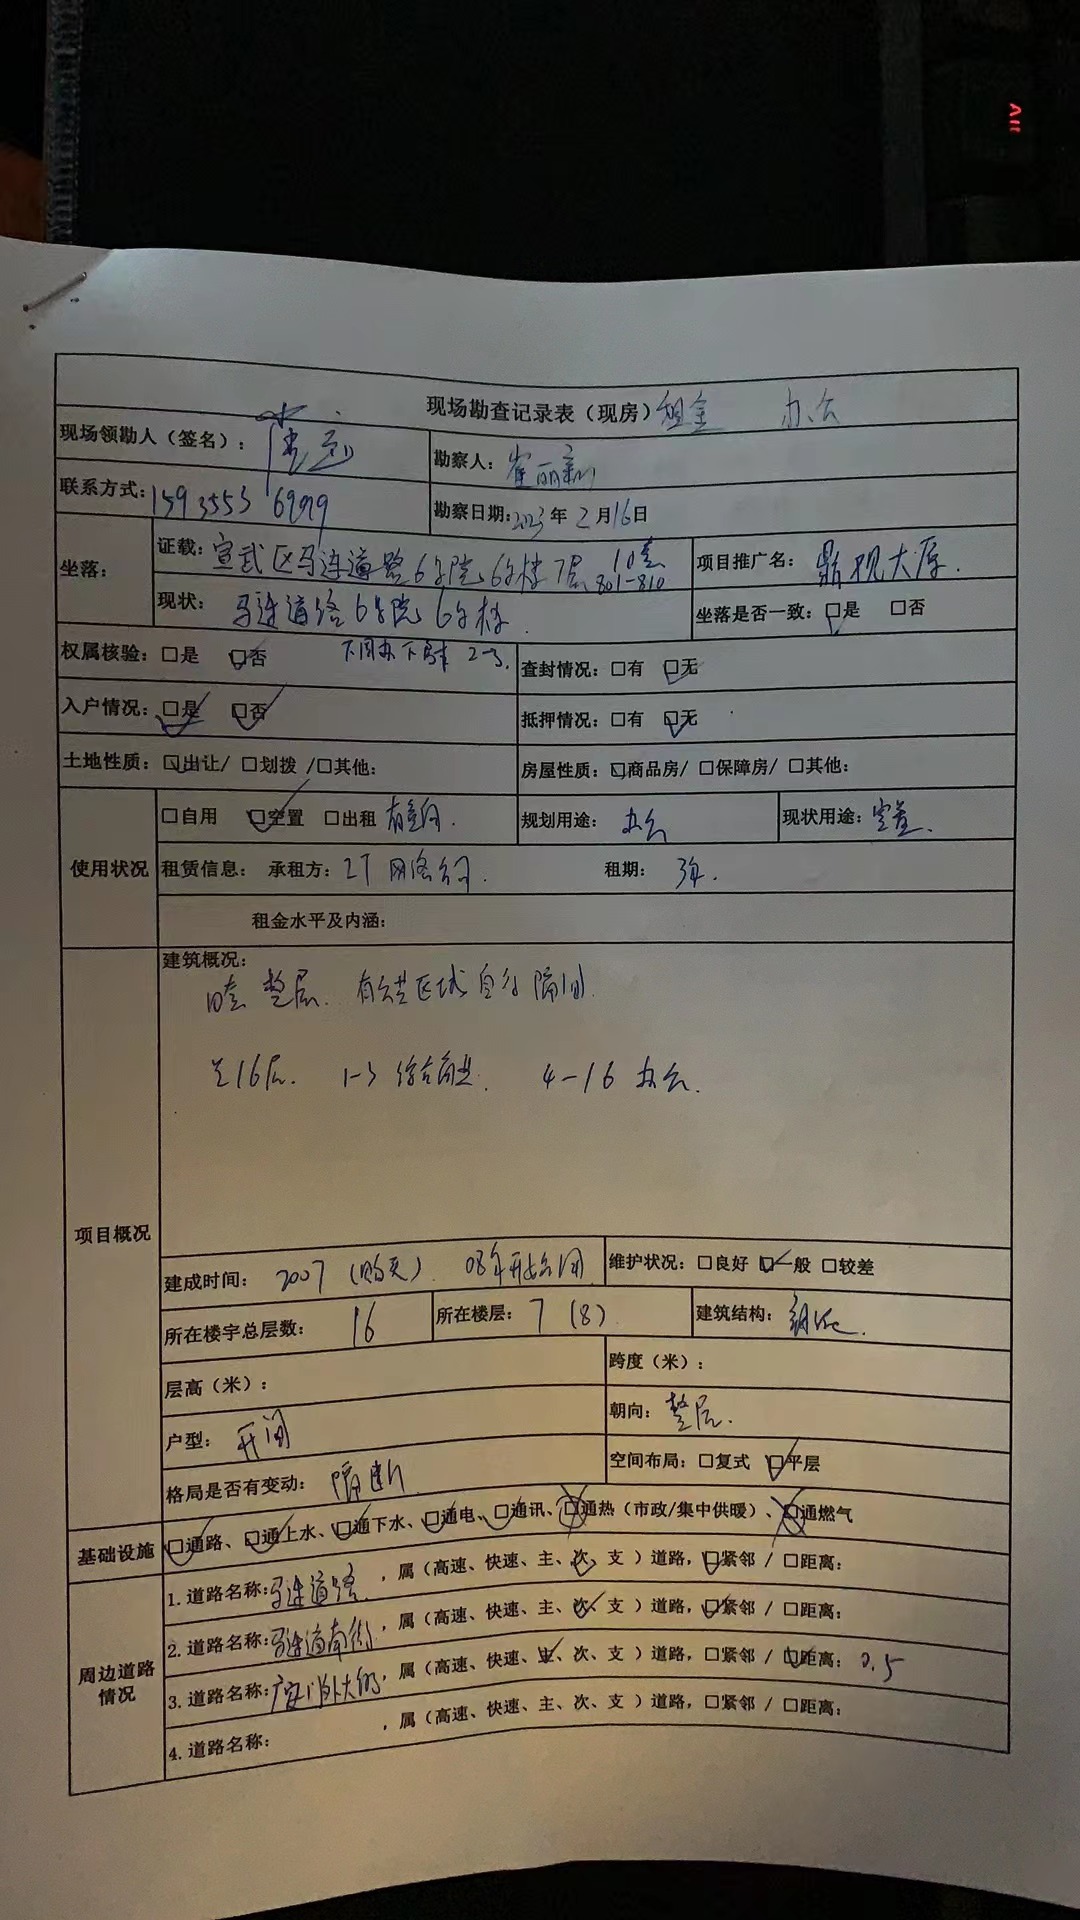 现场勘查记录表（现房）租金 办公
现场领勘人（签名）：
勘察人：崔丽新
联系方式：
勘察日期：2023年2月16日
坐落：
证载：宣武区马连道路6号院6号楼7层 10套 801-810
项目推广名：鼎视大厦.
现状：马连道路6号院6号楼.
坐落是否一致：□是 □否
权属核验：□是 □否
查封情况：□有 □无
入户情况：□是 □否
抵押情况：□有 □无
土地性质：□出让/ □划拨 /□其他：
房屋性质：□商品房/ □保障房/ □其他：
使用状况
□自用 □空置 □出租
规划用途：办公
现状用途：空置.
租赁信息：承租方：IT 网络公司. 租期：
租金水平及内涵：
项目概况
建筑概况：
整层. 有些区域自行隔间.
总16层. 1-3 综合商业. 4-16 办公.
建成时间：2007（购买）. 08年开始
维护状况：□良好 □一般 □较差
所在楼宇总层数：16
所在楼层：7（8）.
建筑结构：钢混.
层高（米）：
跨度（米）：
户型：开间
朝向：整层.
格局是否有变动：隔断
空间布局：□复式 □平层
基础设施
□通路、□通上水、□通下水、□通电、□通讯、□通热（市政/集中供暖）、□通燃气
周边道路情况
1.道路名称：马连道路，属（高速、快速、主、次、支）道路，□紧邻 / □距离：
2.道路名称：马连道南街，属（高速、快速、主、次、支）道路，□紧邻 / □距离：
3.道路名称：广安门外大街，属（高速、快速、主、次、支）道路，□紧邻 / □距离：0.5
4.道路名称： ，属（高速、快速、主、次、支）道路，□紧邻 / □距离：